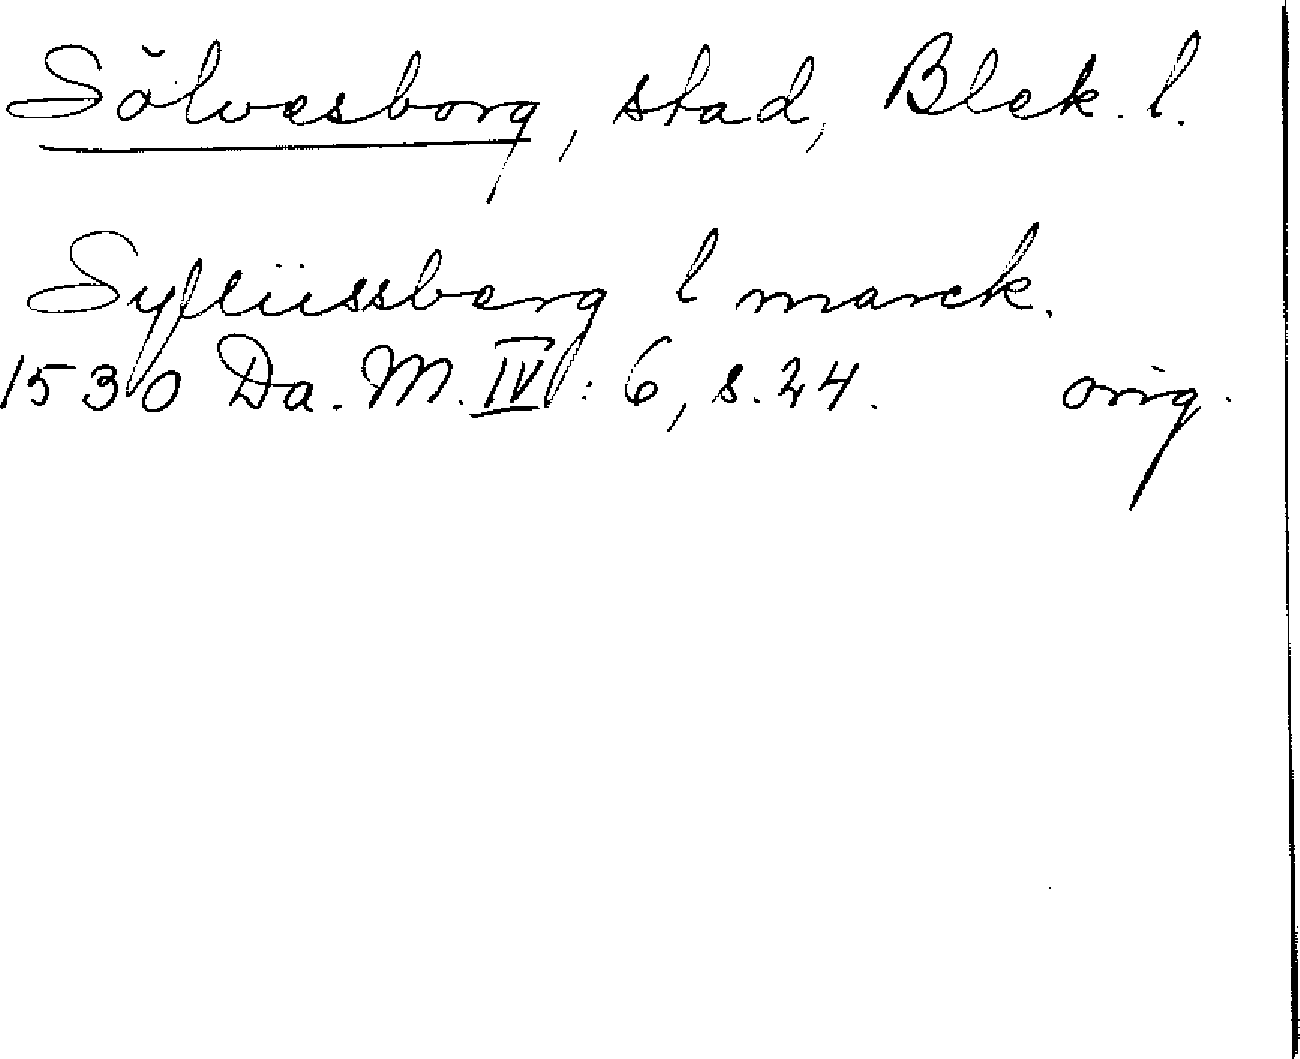 Sölvesborg, stad, Blek. l.
l marck.
1530 Da. M. IV: 6, s. 24. orig.